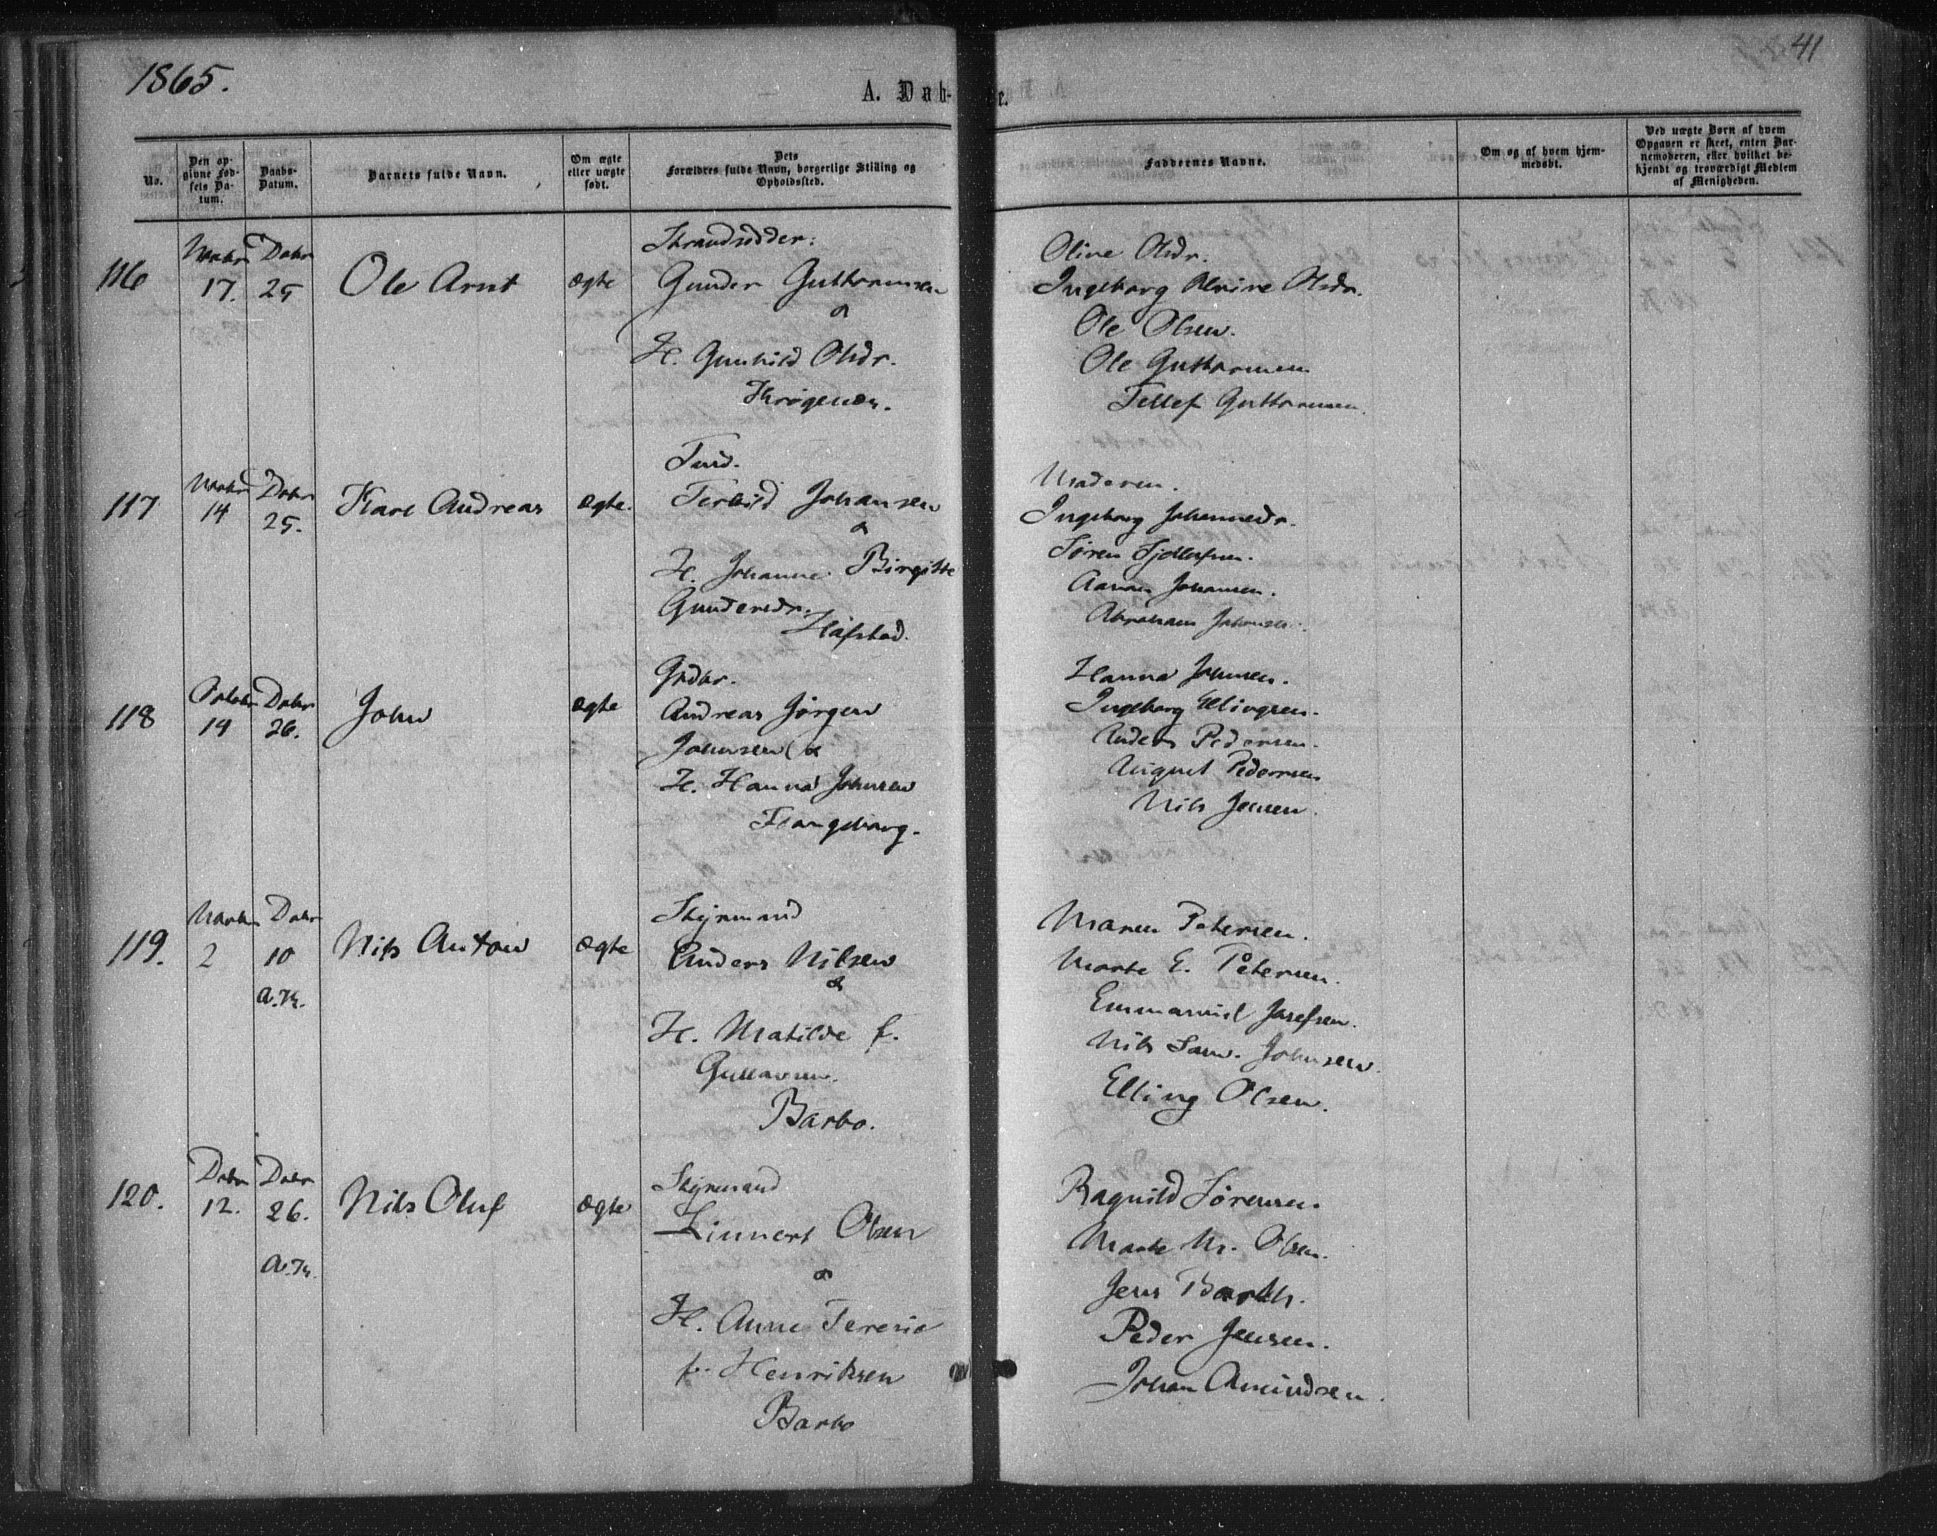 1865.
41
A. Døbte.
No.
Den opgivne Fødsels Datum.
Daabs-Datum.
Barnets fulde Navn.
Om ægte eller uægte født.
Dets Forældres fulde Navn, borgerlige Stilling og Opholdssted.
Faddernes Navne.
Om og af hvem hjemmedøbt.
Ved uægte Børn af hvem Opgaven er skeet, enten Barnemoderen, eller hvilket bekjendt og troværdigt Medlem af Menigheden.
116
17.
Debr
25
Ole Arnt
ægte
Strandsidder:
Gunder Guttormsen
&
H. Gunhild Olsdr.
Olive Olsdr.
Ingeborg Olsdr.
Ole Olsen.
Ole Guttormsen
Tellef Guttormsen
117
14
Debr
25.
Karl Andreas
ægte.
Johansen
&
H. Johanne Birgitte
Gundersdr.
Hafstad.
Moderen.
Ingeborg
Søren
Aanon Johansen.
Abraham
118
19
Debr
26.
John
ægte
Grdbr.
Andreas Jørgen
Johnsen &
H. Hanna Johnsen
Hanna Johnsen.
Ingeborg Ellingsen.
Anders Pedersen.
August Pedersen
Nils Jensen.
119.
2
Debr
10
a.K.
Nils Anton
ægte
Styrmand
Anders Nilsen
&
H. Matilde f.
Barbo.
Maren Petersen.
Marte E. Petersen.
Emmanuel Josefsen.
Nils Johnsen.
Elling Olsen.
120.
Debr
12.
Debr
26.
a.K.
Nils Oluf
ægte
Styrmand
Linnert Olsen
&
H. Anne Teresie
f. Henriksen
Barbo
Ragnild Sørensen.
Marte M. Olsen.
Jens Barth.
Peder Jensen.
Johan Amundsen.